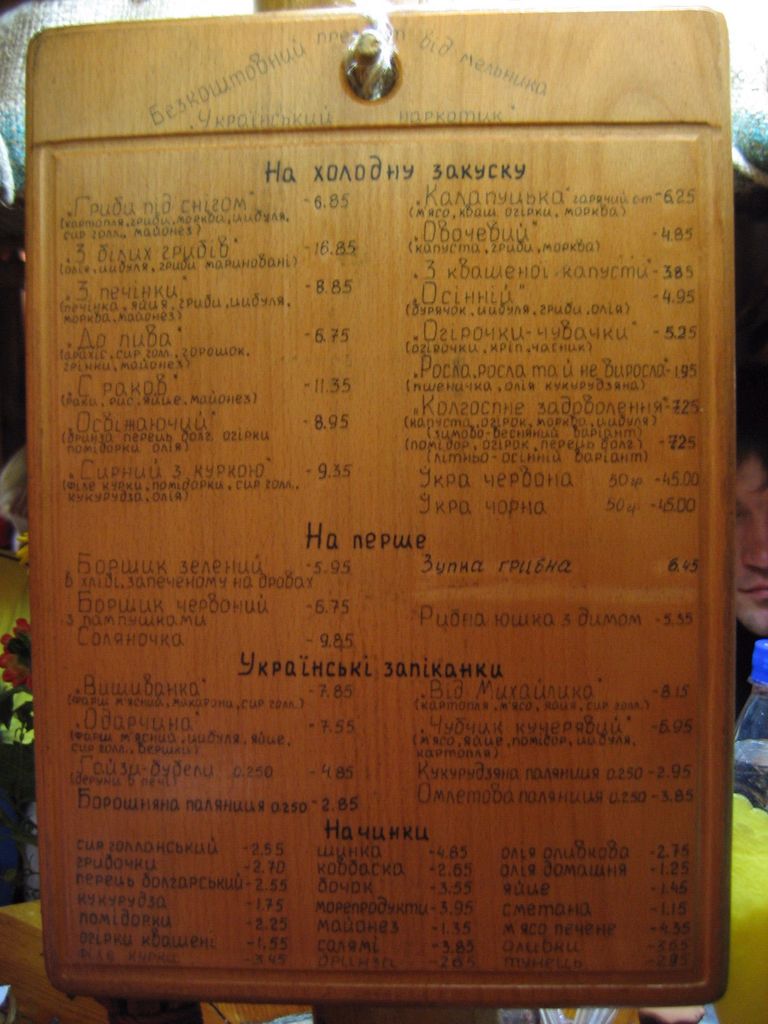 Безкоштовний презент від мельника
"Український наркотик"
На холодну закуску
"Гриби під снігом" - 6.85
(картопля, гриби, морква, цибуля,
сир голл., майонез)
"З білих грибів" - 16.85
(олія, цибуля, гриби мариновані)
"З печінки" - 8.85
(печінка, яйця, гриби, цибуля,
морква, майонез)
"До пива" - 6.75
(арахіс, сир голл., горошок,
грінки, майонез)
"С раков" - 11.35
(раки, рис, яйце, майонез)
"Освіжаючий" - 8.95
(бринза перець болг. огірки
помідорки олія)
"Сирний з куркою" - 9.35
(філе курки, помідорки, сир голл.,
кукурудза, олія)
"Калапуцька" гарячий от - 6.25
(м'ясо, кваш. огірки, морква)
"Овочевий" - 4.85
(капуста, гриби, морква)
"З квашеної капусти" - 3.85
"Осінній" - 4.95
(бурячок, цибуля, гриби, олія)
"Огірочки-чувачки" - 5.25
(огірочки, кріп, часник)
"Росла, росла та й не виросла" - 1.95
(пшеничка, олія кукурудзяна)
"Колгоспне задоволення" - 7.25
(капуста, огірок, морква, цибуля)
(зимово-весняний варіант)
(помідор, огірок, перець болг) - 7.25
(літньо-осінній варіант)
Ікра червона 50гр - 45.00
Ікра чорна 50гр - 45.00
На перше
Борщик зелений - 5.95
в хлібі, запеченому на дровах
Борщик червоний - 6.75
з пампушками
Соляночка - 9.85
Зупка грибна 6.45
Рибна юшка з димом - 5.55
Українські запіканки
"Вишиванка" - 7.85
(фарш м'ясний, макарони, сир голл.)
"Одарчина" - 7.55
(фарш м'ясний, цибуля, яйце,
сир голл., вершки)
Гайзи-бубели 0.250 - 4.85
(деруни в печі)
Борошняна паляниця 0.250 - 2.85
"Від Михайлика" - 8.15
(картопля, м'ясо, яйця, сир голл.)
"Чубчик кучерявий" - 6.95
(м'ясо, яйце, помідор, цибуля,
картопля)
Кукурудзяна паляниця 0.250 - 2.95
Омлетова паляниця 0.250 - 3.85
Начинки
сир голланський - 2.55
грибочки - 2.70
перець болгарський - 2.55
кукурудза - 1.75
помідорки - 2.25
огірки квашені - 1.55
філе курки - 3.45
шинка - 4.85
ковбаска - 2.65
бочок - 3.55
морепродукти - 3.95
майонез - 1.35
салямі - 3.85
бринза - 2.65
олія оливкова - 2.75
олія домашня - 1.25
яйце - 1.45
сметана - 1.15
м'ясо печене - 4.35
оливки - 3.65
тунець - 2.95